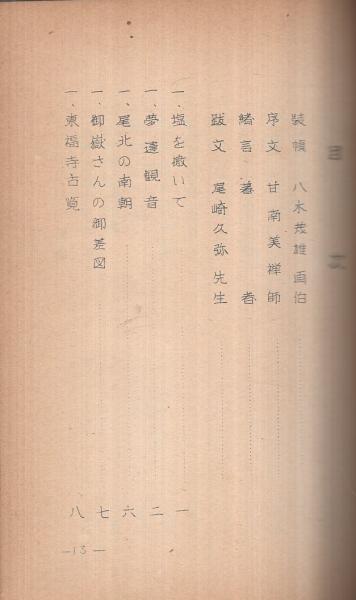 目次
装幀 八木茂雄画伯
序文 甘南美禅師
緒言 著者
跋文 尾崎久弥先生
一、塩を撒いて 一
一、夢違観音 二
一、尾北の南朝 六
一、御嶽さんの御差図 七
一、東福寺古覧 八
—13—